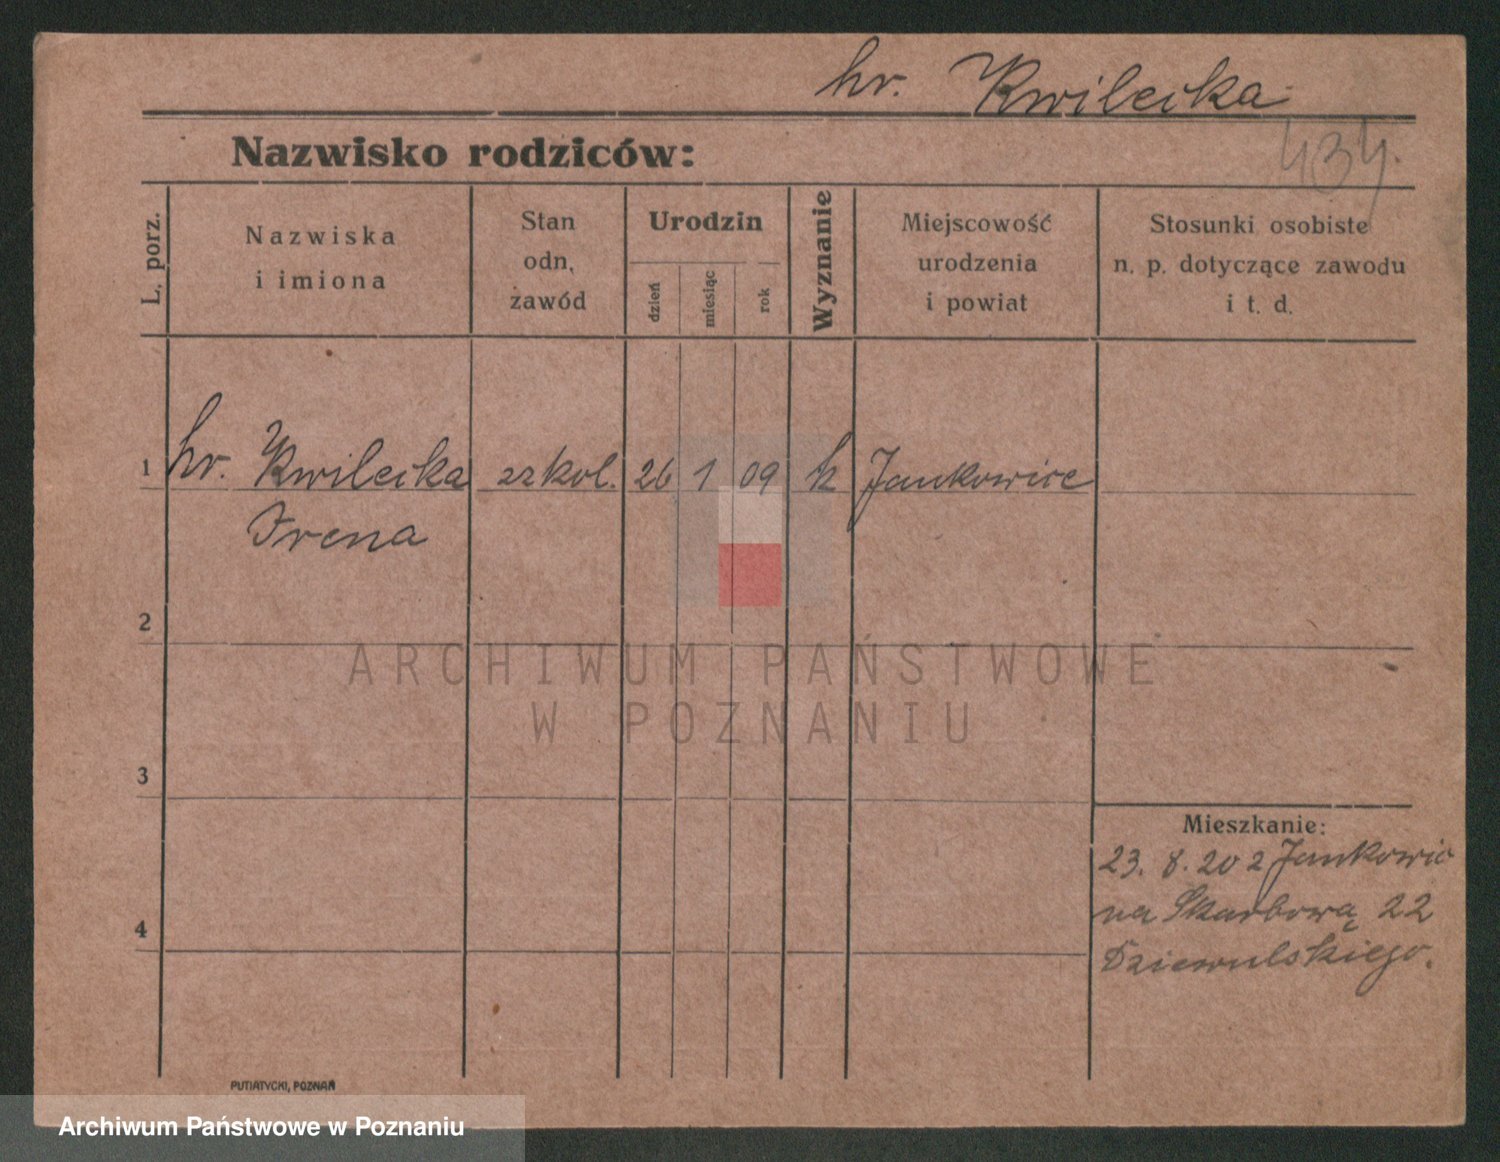 hr. Kwilecka
Nazwisko rodziców:
L. porz.
Nazwiska
i imiona
Stan
odn.
zawód
Urodzin
dzień
miesiąc
rok
Wyznanie
Miejscowość
urodzenia
i powiat
Stosunki osobiste
n. p. dotyczące zawodu
i t. d.
1 hr. Kwilecka szkol. 26 1 09 k Jankowice
Irena
2
ARCHIWUM PAŃSTWOWE
W POZNANIU
3
Mieszkanie:
23. 8. 20 z Jankowic
na Skarbową 22
4
Dziewulskiego.
PUTIATYCKI, POZNAŃ
Archiwum Państwowe w Poznaniu